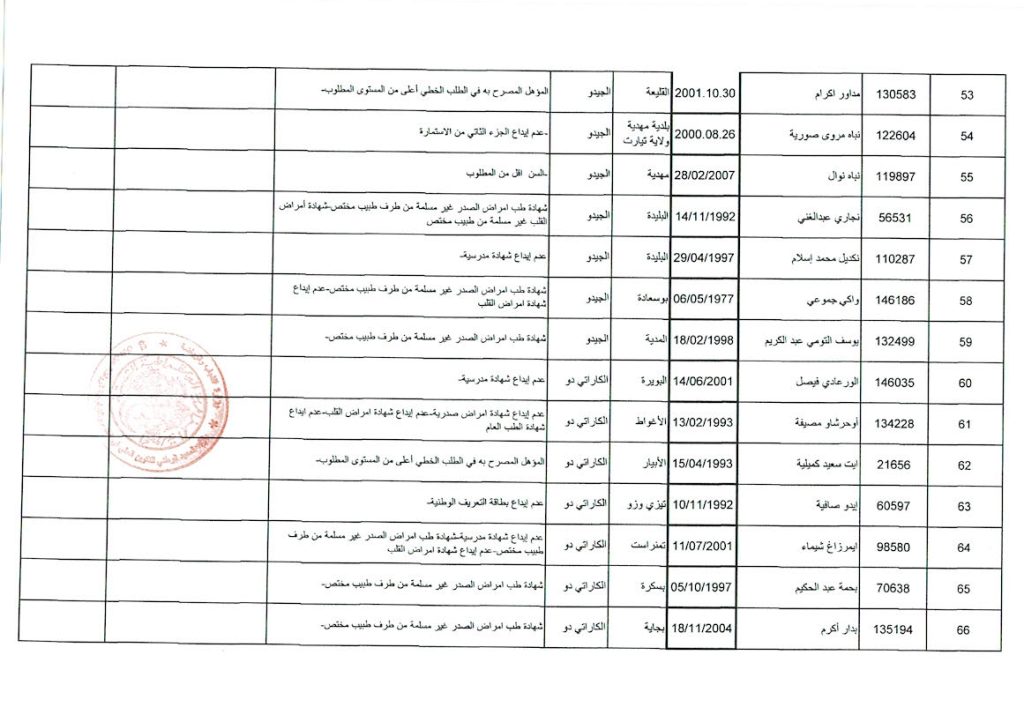 53 130583 مداور اكرام 2001.10.30 القليعة الجيدو المؤهل المصرح به في الطلب الخطي أعلى من المستوى المطلوب-
54 122604 نباه مروى صورية 2000.08.26 بلدية مهدية ولاية تيارت الجيدو -عدم إيداع الجزء الثاني من الاستمارة
55 119897 نباه نوال 28/02/2007 مهدية الجيدو -السن اقل من المطلوب
56 56531 نجاري عبدالغني 14/11/1992 البليدة الجيدو شهادة طب امراض الصدر غير مسلمة من طرف طبيب مختص-شهادة أمراض
القلب غير مسلمة من طبيب مختص
57 110287 نكديل محمد إسلام 29/04/1997 البليدة الجيدو عدم إيداع شهادة مدرسية-
58 146186 واكي جموعي 06/05/1977 بوسعادة الجيدو شهادة طب امراض الصدر غير مسلمة من طرف طبيب مختص-عدم إيداع
شهادة امراض القلب
59 132499 يوسف التومي عبد الكريم 18/02/1998 المدية الجيدو شهادة طب امراض الصدر غير مسلمة من طرف طبيب مختص-
60 146035 الورعادي فيصل 14/06/2001 البويرة الكاراتي دو عدم إيداع شهادة مدرسية-
61 134228 أوحرشاو مصيفة 13/02/1993 الأغواط الكاراتي دو عدم إيداع شهادة امراض صدرية-عدم إيداع شهادة امراض القلب-عدم ايداع
شهادة الطب العام
62 21656 ايت سعيد كميلية 15/04/1993 الأبيار الكاراتي دو المؤهل المصرح به في الطلب الخطي أعلى من المستوى المطلوب-
63 60597 إيدو صافية 10/11/1992 تيزي وزو الكاراتي دو عدم إيداع بطاقة التعريف الوطنية-
64 98580 ايمرزاغ شيماء 11/07/2001 تمنراست الكاراتي دو عدم إيداع شهادة مدرسية-شهادة طب امراض الصدر غير مسلمة من طرف
طبيب مختص-عدم إيداع شهادة امراض القلب
65 70638 بحمة عبد الحكيم 05/10/1997 بسكرة الكاراتي دو شهادة طب امراض الصدر غير مسلمة من طرف طبيب مختص-
66 135194 بدار أكرم 18/11/2004 بجاية الكاراتي دو شهادة طب امراض الصدر غير مسلمة من طرف طبيب مختص-